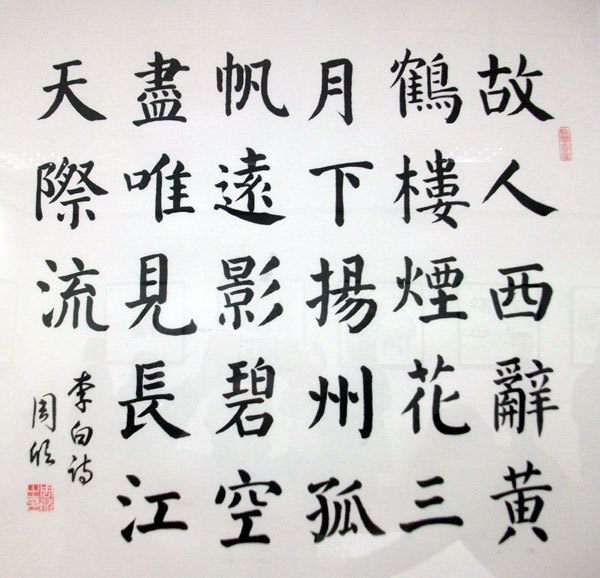 故人西辭黃
鶴樓煙花三
月下揚州孤
帆遠影碧空
盡唯見長江
天際流
李白詩
周欣